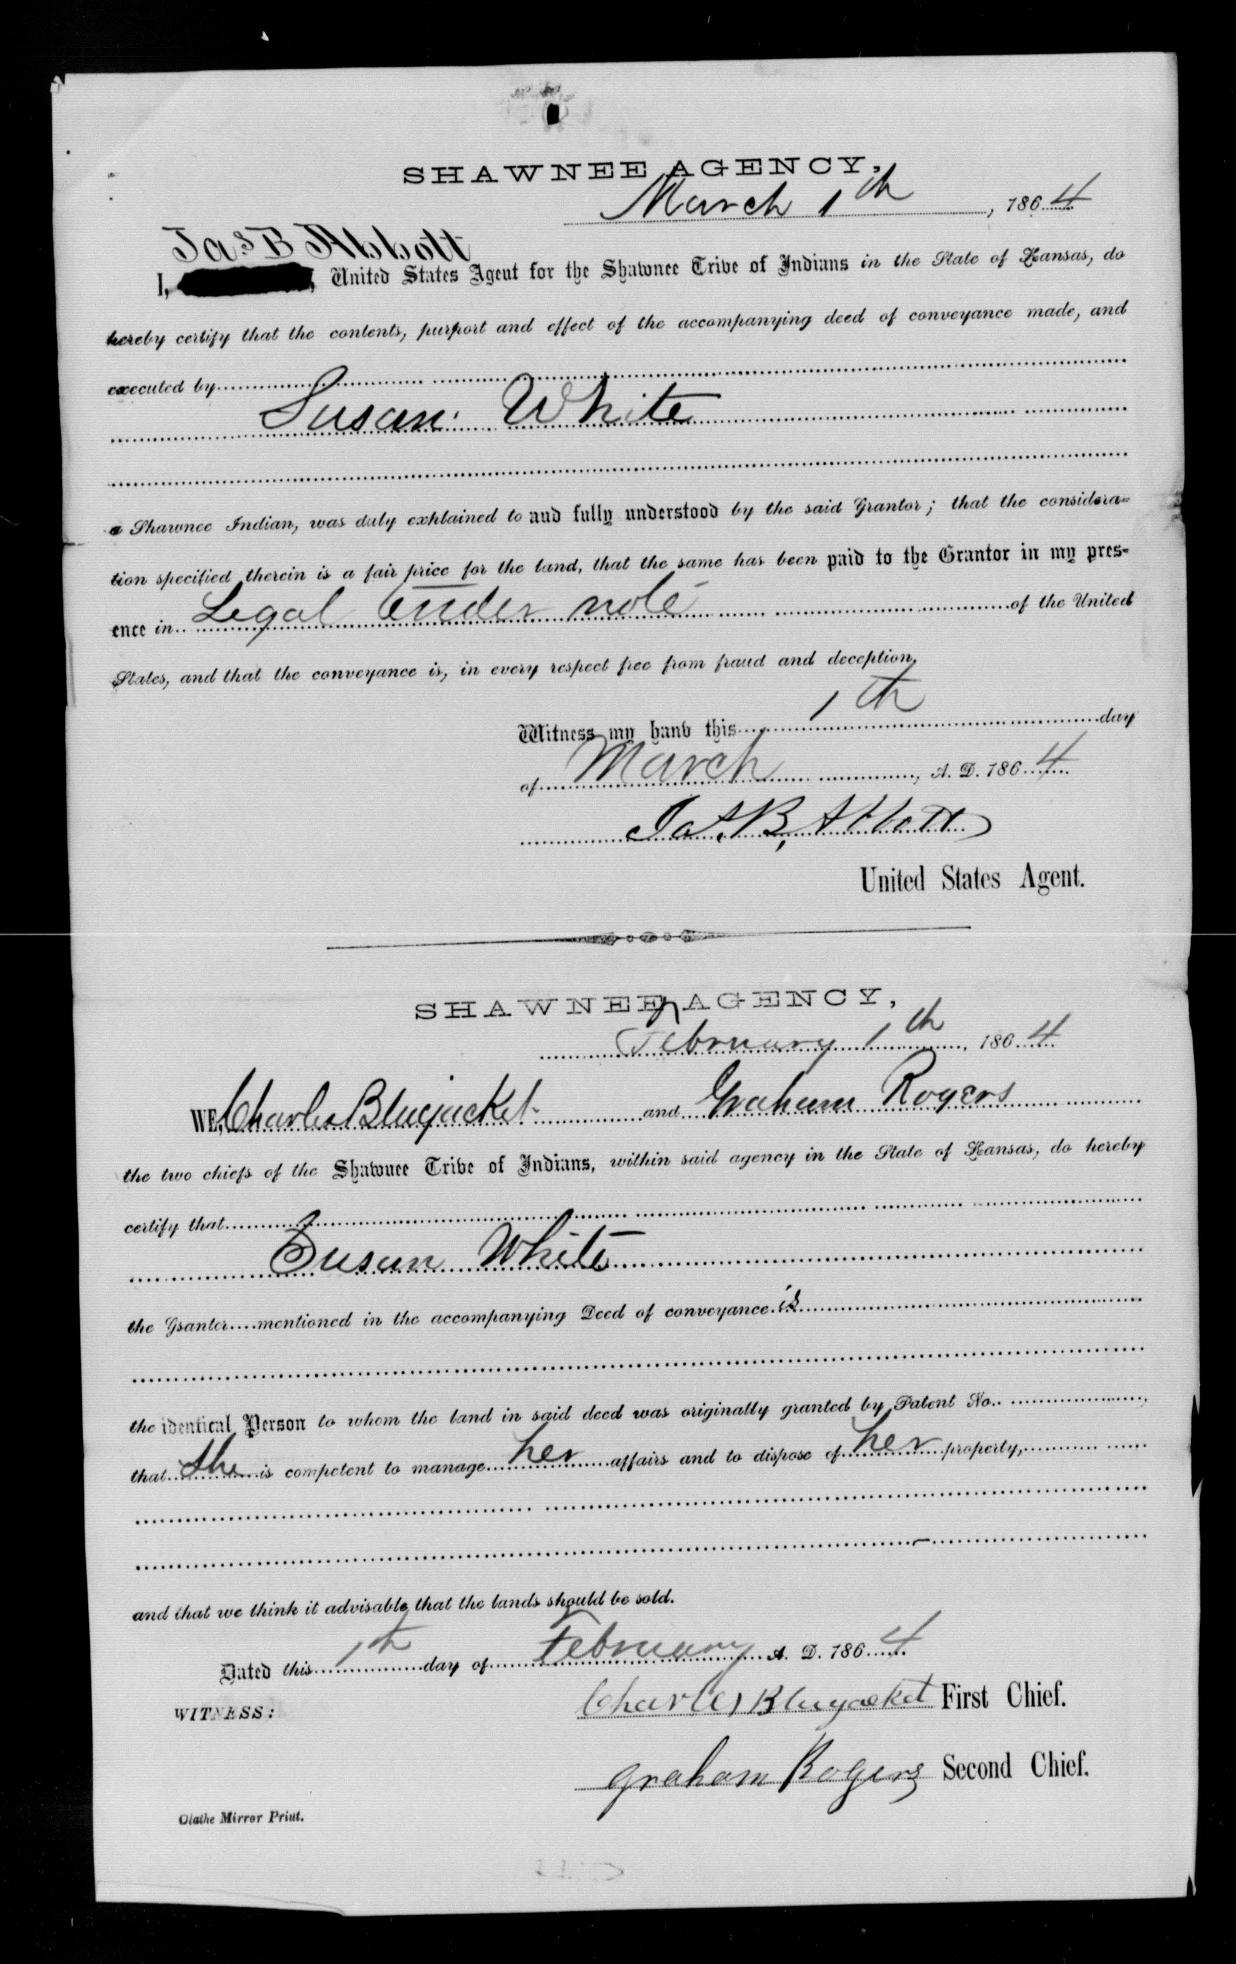 SHAWNEE AGENCY,
March 1th, 1864
Jas B Abbott
I, United States Agent for the Shawnee Tribe of Indians in the State of Kansas, do
hereby certify that the contents, purport and effect of the accompanying deed of conveyance made, and
executed by
Susan White
a Shawnee Indian, was duly explained to and fully understood by the said Grantor; that the considera-
tion specified therein is a fair price for the land, that the same has been paid to the Grantor in my pres-
ence in Legal tender note of the United
States, and that the conveyance is, in every respect free from fraud and deception.
Witness my hand this 1th day
of March, A. D. 1864
Jas. B. Abbott
United States Agent.
SHAWNEE AGENCY,
February 1th, 1864
WE, Charles Bluejacket and Graham Rogers
the two chiefs of the Shawnee Tribe of Indians, within said agency in the State of Kansas, do hereby
certify that
Susan White
the Gsantor mentioned in the accompanying Deed of conveyance is
the identical Person to whom the land in said deed was originally granted by Patent No.
that she is competent to manage her affairs and to dispose of her property,
and that we think it advisable that the lands should be sold.
Dated this 1th day of February A. D. 1864
WITNESS: Charles Bluejacket First Chief.
Graham Rogers Second Chief.
Olathe Mirror Print.